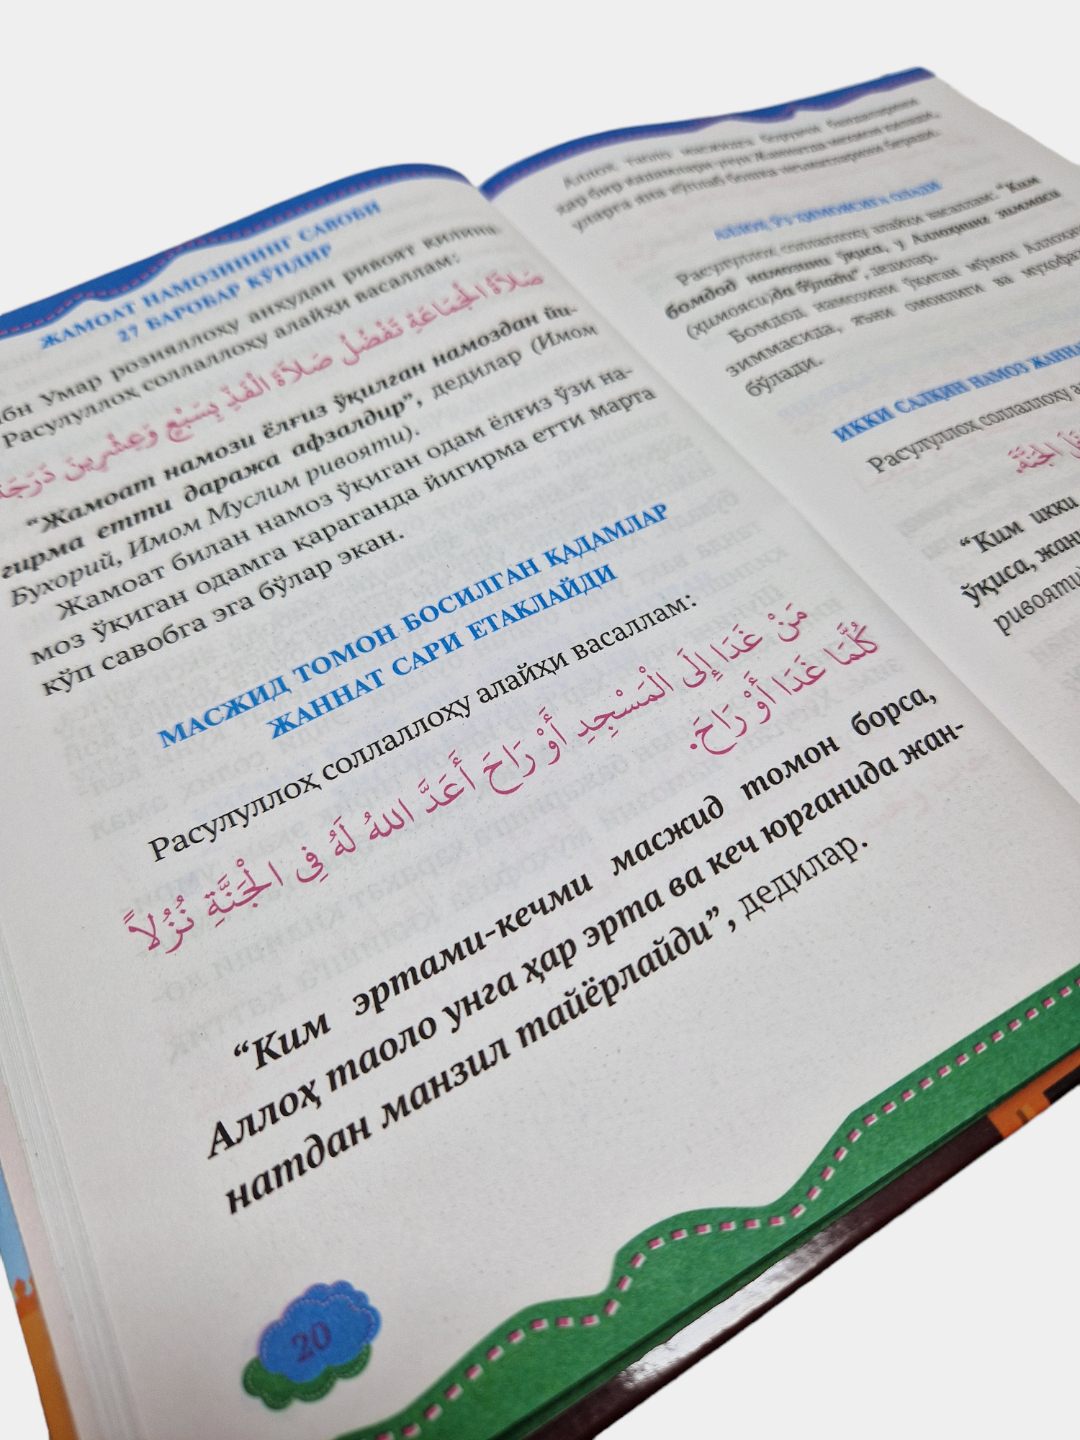 ЖАМОАТ НАМОЗИНИНГ САВОБИ
27 БАРОБАР КЎПДИР
Ибн Умар розияллоҳу анҳудан ривоят қилина-
Расулуллоҳ соллаллоҳу алайҳи васаллам:
صَلَاةُ الْجَمَاعَةِ تَفْضُلُ صَلَاةَ الْفَذِّ بِسَبْعٍ وَعِشْرِينَ دَرَجَةً
“Жамоат намози ёлғиз ўқилган намоздан йи-
гирма етти даража афзалдир”, дедилар (Имом
Бухорий, Имом Муслим ривояти).
Жамоат билан намоз ўқиган одам ёлғиз ўзи на-
моз ўқиган одамга қараганда йигирма етти марта
кўп савобга эга бўлар экан.
МАСЖИД ТОМОН БОСИЛГАН ҚАДАМЛАР
ЖАННАТ САРИ ЕТАКЛАЙДИ
Расулуллоҳ соллаллоҳу алайҳи васаллам:
مَنْ غَدَا إِلَى الْمَسْجِدِ أَوْ رَاحَ أَعَدَّ اللهُ لَهُ فِى الْجَنَّةِ نُزُلاً
كُلَّمَا غَدَا أَوْ رَاحَ.
“Ким эртами-кечми масжид томон борса,
Аллоҳ таоло унга ҳар эрта ва кеч юрганида жан-
натдан манзил тайёрлайди”, дедилар.
20
Аллоҳ таоло масжидга борувчи бандаларини
ҳар бир қадамлари учун Жаннатда меҳмон қилади,
уларга яна кўплаб бошқа неъматларини беради.
АЛЛОҲ ЎЗ ҲИМОЯСИГА ОЛАДИ
Расулуллоҳ соллаллоҳу алайҳи васаллам: “Ким
бомдод намозини ўқиса, у Аллоҳнинг зиммаса
(ҳимояси)да бўлади”, дедилар.
Бомдод намозини ўқиган мўмин Аллоҳнинг
зиммасида, яъни омонлиги ва муҳофаза
бўлади.
ИККИ САЛҚИН НАМОЗ ЖАННАТ
Расулуллоҳ соллаллоҳу а
الْجَنَّةَ.
“Ким икки
ўқиса, жан
ривояти